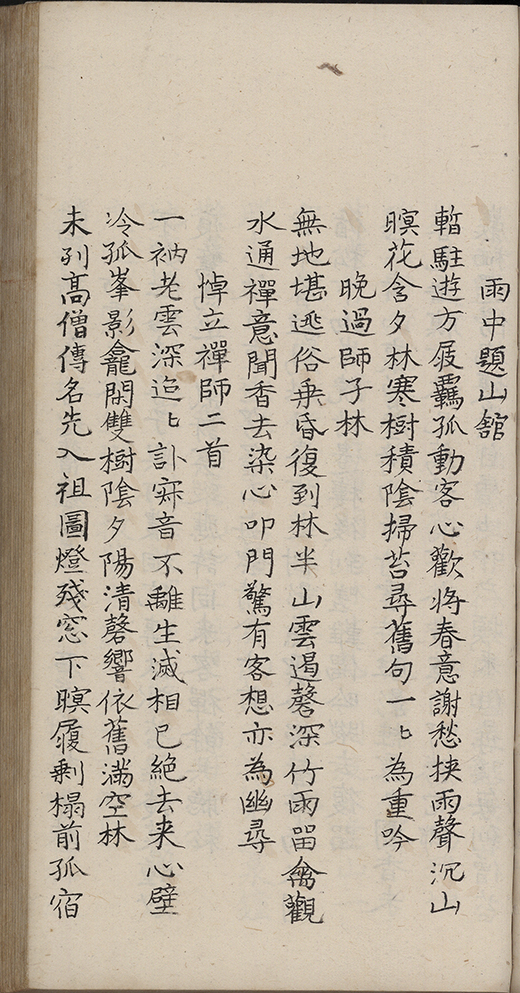 雨中題山舘
暫駐遊方屐羈孤動客心歡將春意謝愁挾雨聲沉山
暝花含夕林寒樹積陰掃苔尋舊句一〻為重吟
晚過師子林
無地堪逃俗乗昏復到林半山雲遏磬深竹雨留禽觀
水通禪意聞香去染心叩門驚有客想亦為幽尋
悼立禪師二首
一衲老雲深迢〻訃寐音不離生滅相已絶去来心壁
冷孤峯影龕閑雙樹陰夕陽清磬響依舊滿空林
未列高僧傳名先入祖圖燈殘窓下暝履剩榻前孤宿